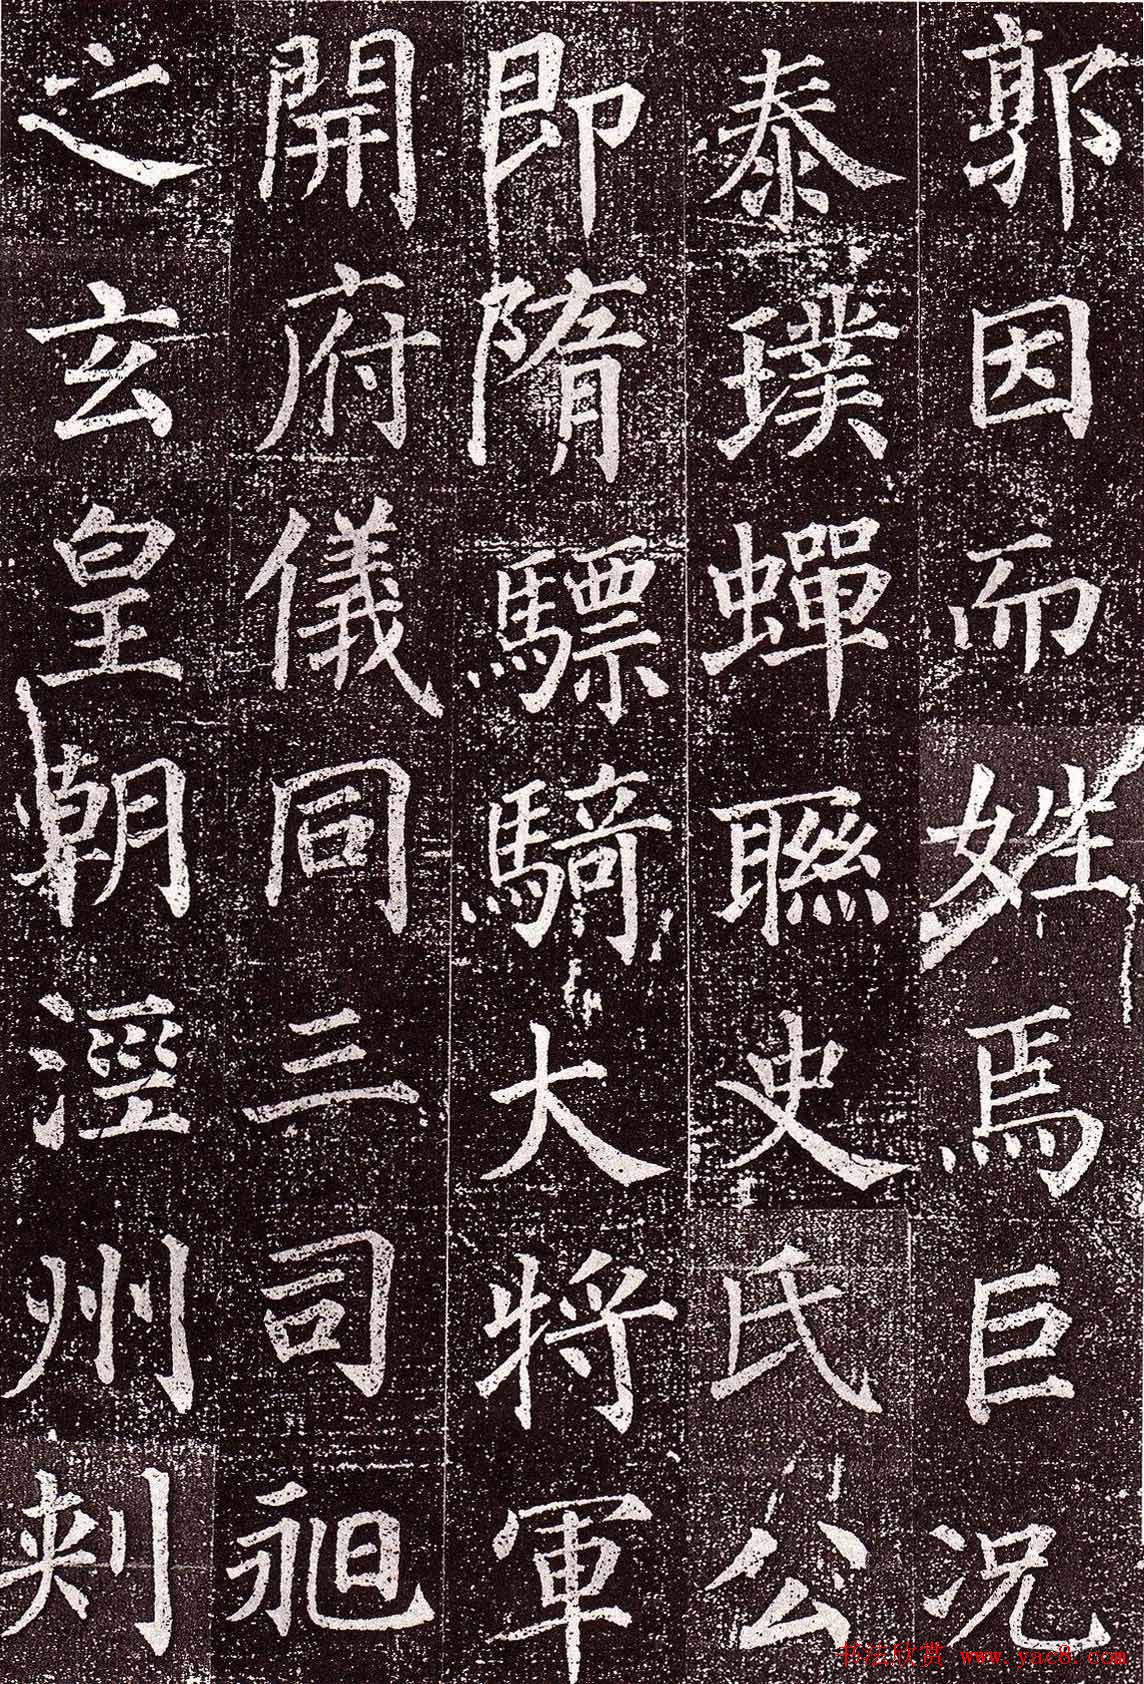 郭因而姓焉巨况
泰璞蟬聯史氏公
即隋驃騎大將軍
開府儀同三司昶
之玄皇朝涇州刺
书法欣赏 www.yac8.com